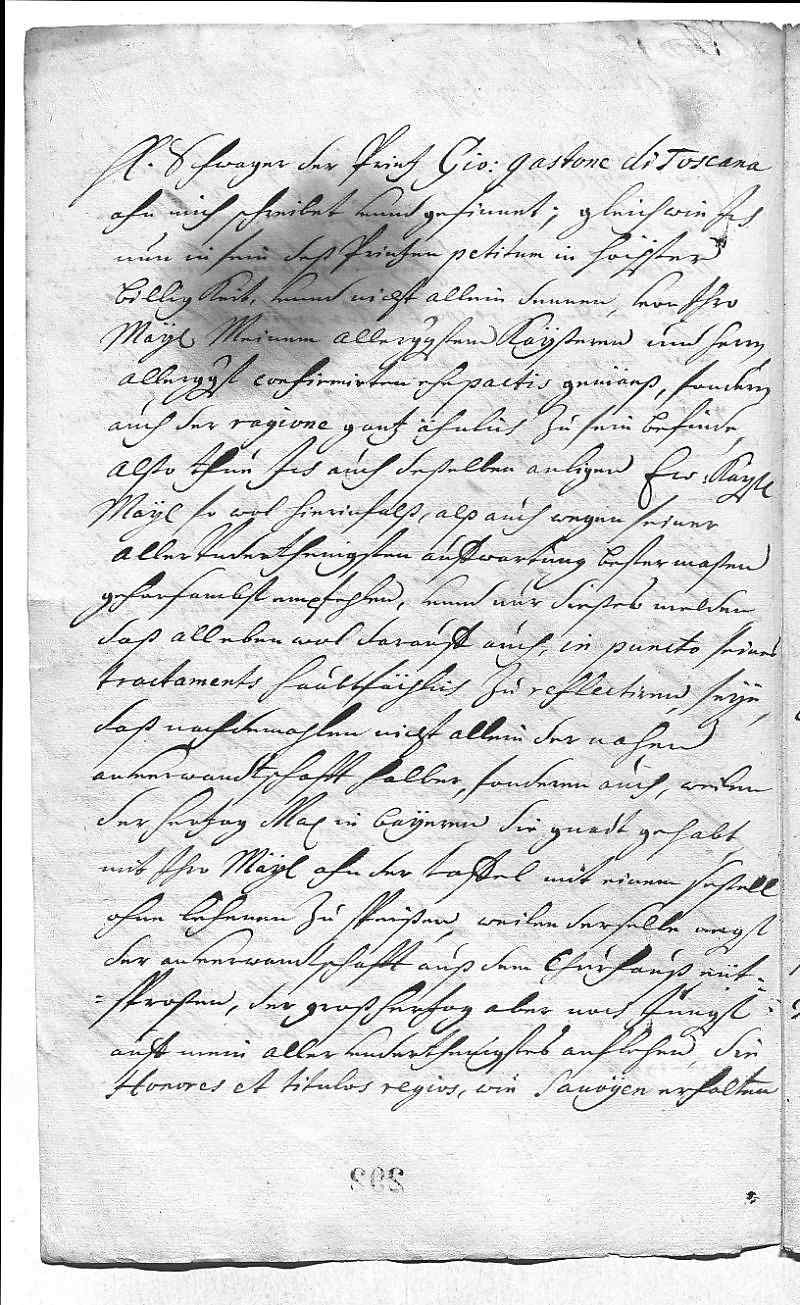 H. Schwager der Printz Gio: Gastone di Toscana
ahn mich schreibet unnd gesinnet; gleich wie Ich
nun in sein deß Printzen petitum in höchster
billigkeit, unnd nicht allein denen, von Ihro
Mayl Meinem allergsten Kaysteren und herrn
allergst confirmirten ehepactis gemäeß, sondern
auch der ragione gantz ähnlich zu sein befinde,
also thue Ich auch deßelben anligen Ew: Kaysl
Mayl so wol hierinfalß, alß auch wegen seiner
allerunderthenigsten auffwartung bester maßen
gehorsambst empfehlen, unnd nur dießes melden
daß alleben wol darauff auch, in puncto seines
tractaments haubtsächlich zu reflectiren seye,
daß nachdemahlen nicht allein der nahen
anverwandtschafft halber, sonderen auch, weilen
der hertzog Max in bayeren die gnadt gehabt
mit Ihro Mayl ahn der taffel mit einem seßell
ohne lehenen zu speißen, weilen derselbe negst
der anverwandtschafft auß dem Churhauß ent-
-sproßen, der großhertzog aber noch jüngst
auff mein allerunderthenigstes anflehen die
Honores et titulos regios, wie Savoyen erhalten
292